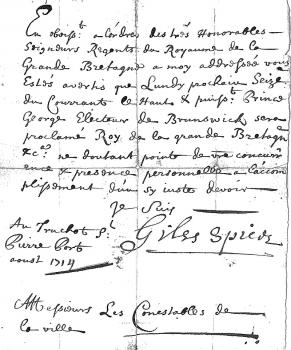 En obeiss:t a L'ordre des tres Honorables
Seigneurs Regents du Royaume de la
Grande Bretagne a moy addressée vous
Estes avertis que Lundy prochain Seize
du Courrant le Haut & puiss:t Prince
George Electeur de Brunswick sera
proclamé Roy de la grande Bretagne
&ca. ne doutant point de vre concurr
ence & presence personnelle a L'accom
plissement d'un sy juste devoir
Je Suis
Au Truchot St.
Pierre Port
aoust 1714
Giles Spicer
A Messieurs Les Conestables de
la ville